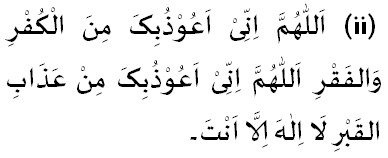 (ii) اَللّٰهُمَّ اِنِّیْ اَعُوْذُبِکَ مِنَ الْکُفْرِ
وَالفَقْرِ اَللّٰهُمَّ اِنِّیْ اَعُوْذُبِکَ مِنْ عَذَابِ
القَبْرِ لَا اِلٰهَ اِلَّا اَنْتَ۔